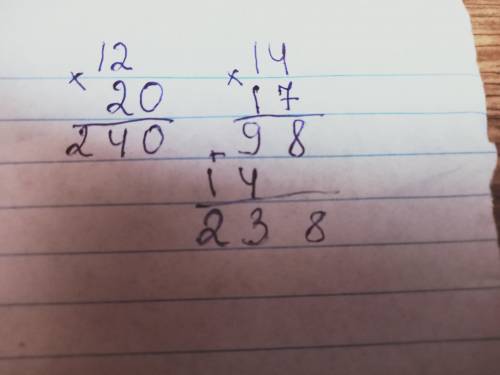 12
× 20
240
14
× 17
98
+
14
238